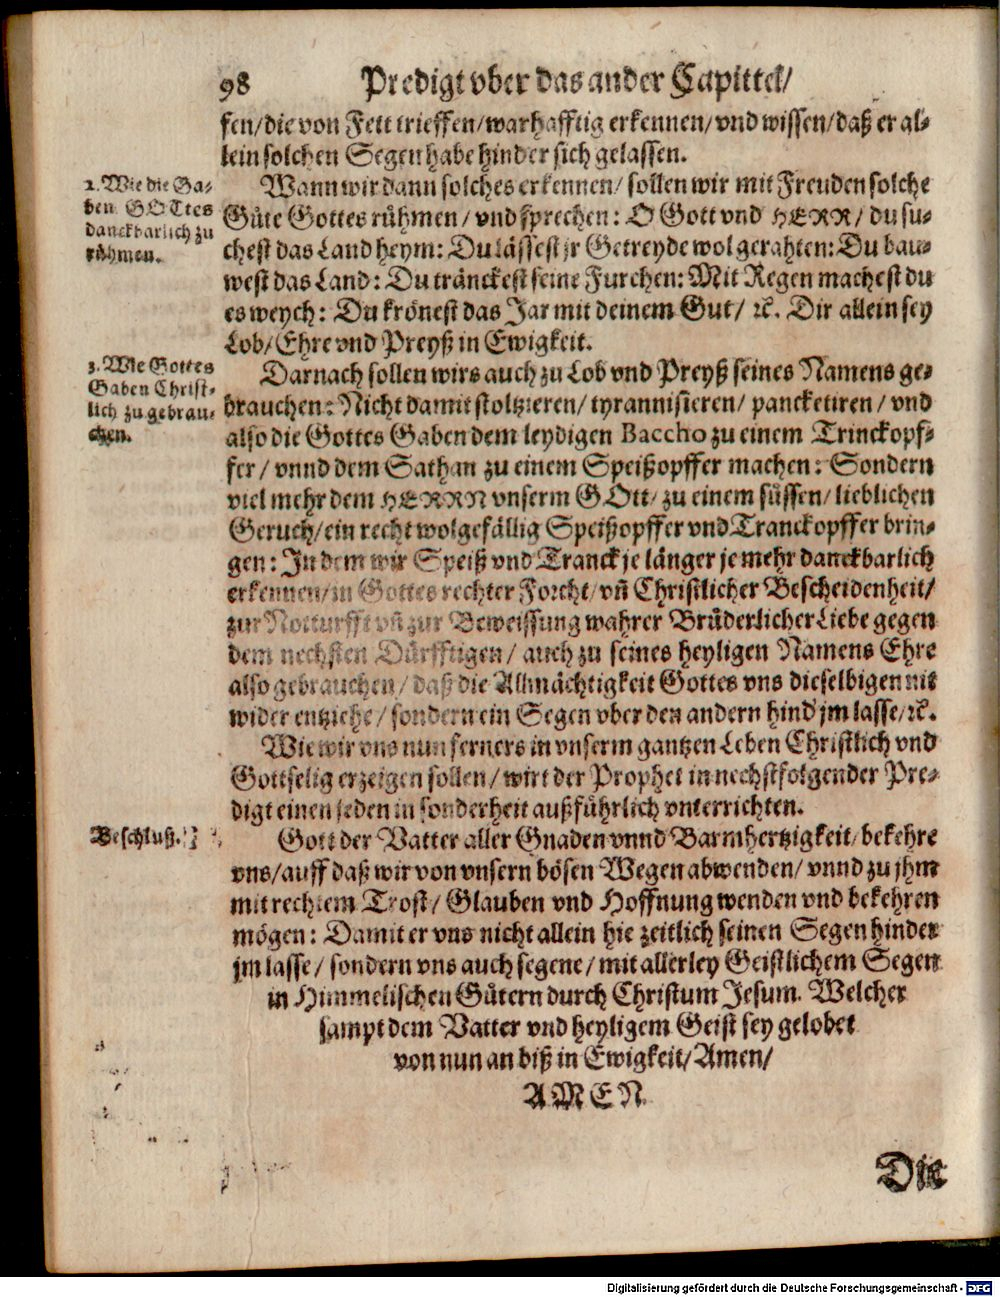 98 Predigt vber das ander Capittel/
fen/die von Fett trieffen/warhafftig erkennen/vnd wissen/daß er al-
lein solchen Segen habe hinder sich gelassen.
2. Wie die Ga-
ben GOTtes
danckbarlich zu
rühmen.
Wann wir dann solches erkennen/ sollen wir mit Freuden solche
Güte Gottes rühmen/ vnd sprechen: O Gott vnd HERR/ du su-
chest das Land heym: Du lässest jr Getreyde wol gerahten: Du bau-
west das Land: Du tränckest seine Furchen: Mit Regen machest du
es weych: Du krönest das Jar mit deinem Gut/ ꝛc. Dir allein sey
Lob/ Ehre vnd Preyß in Ewigkeit.
3. Wie Gottes
Gaben Christ-
lich zu gebrau-
chen.
Darnach sollen wirs auch zu Lob vnd Preyß seines Namens ge-
brauchen: Nicht damit stoltzieren/ tyrannisieren/ pancketiren/ vnd
also die Gottes Gaben dem leydigen Baccho zu einem Trinckopf-
fer/ vnnd dem Sathan zu einem Speißopffer machen: Sondern
viel mehr dem HERRN vnserm GOtt/ zu einem süssen/ lieblichen
Geruch/ein recht wolgefällig Speißopffer vnd Tranckopffer brin-
gen: In dem wir Speiß vnd Tranck je länger je mehr danckbarlich
erkennen/in Gottes rechter Forcht/ vñ Christlicher Bescheidenheit/
zur Notturfft vñ zur Beweissung wahrer Brüderlicher Liebe gegen
dem nechsten Dürfftigen/ auch zu seines heyligen Namens Ehre
also gebrauchen/ daß die Allmächtigkeit Gottes vns dieselbigen nit
wider entziehe/ sondern ein Segen vber den andern hind' jm lasse/ꝛc.
Wie wir vns nun ferners in vnserm gantzen Leben Christlich vnd
Gottselig erzeigen sollen/ wirt der Prophet in nechstfolgender Pre-
digt einen jeden in sonderheit außführlich vnterrichten.
Beschluß.
Gott der Vatter aller Gnaden vnnd Barmhertzigkeit/ bekehre
vns/auff daß wir von vnsern bösen Wegen abwenden/ vnnd zu jhm
mit rechtem Trost/ Glauben vnd Hoffnung wenden vnd bekehren
mögen: Damit er vns nicht allein hie zeitlich seinen Segen hinder
jm lasse/ sondern vns auch segene/ mit allerley Geistlichem Segen
in Himmelischen Gütern durch Christum Jesum. Welcher
sampt dem Vatter vnd heyligem Geist sey gelobet
von nun an biß in Ewigkeit/Amen/
AMEN.
Die
Digitalisierung gefördert durch die Deutsche Forschungsgemeinschaft - DFG